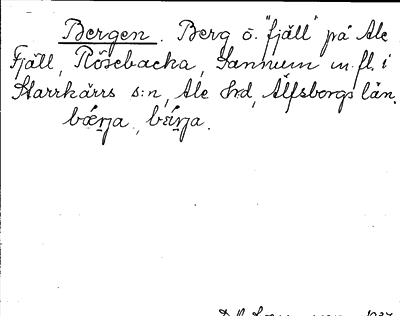 Bergen. Berg o. "fjäll" på Ale
Fjäll, Rösebacka, Sannum m.fl. i
Starrkärrs s:n, Ale Hrd, Älfsborgs län.
bǽrja, bǽrja.
1937